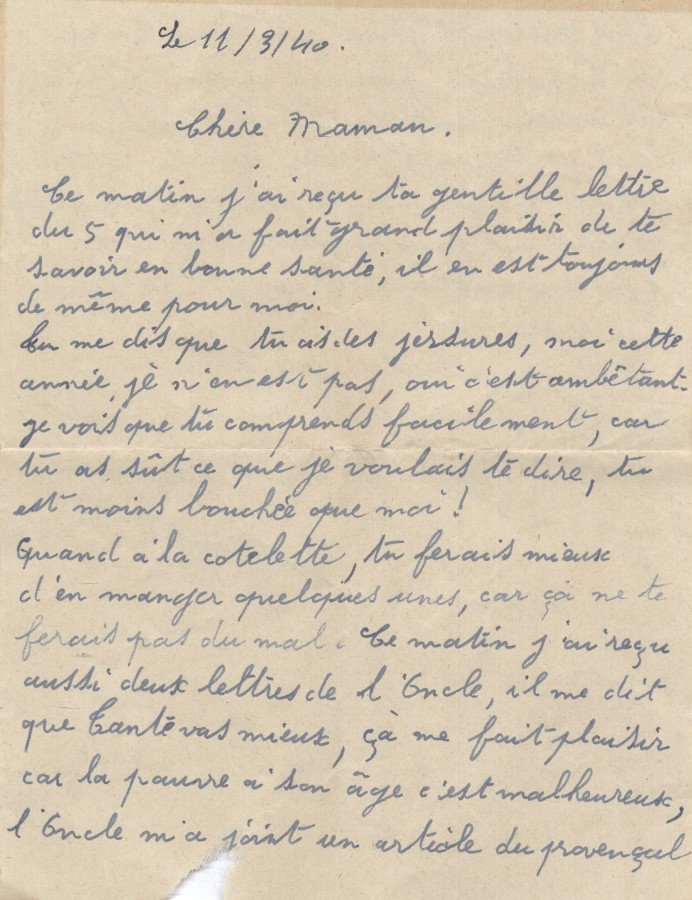 Le 11/3/40.
Chère Maman.
Ce matin j'ai reçu ta gentille lettre
du 5 qui m'a fait grand plaisir de te
savoir en bonne santé, il en est toujours
de même pour moi.
Tu me dis que tu as des jersures, moi cette
année, jè n'en est pas, oui c'est ambêtant.
je vois que tù comprends facilement, car
tù as sût ce que jè voulais tè dire, tu
est moins bouchée que moi !
Quand à la cotelette, tu ferais mieux
d'en manger quelques unes, car çà ne te
ferais pas du mal. Ce matin j'ai reçu
aussi deux lettres de l'Oncle, il me dit
que Tante vas mieux, çà me fait plaisir
car la pauvre a son âge c'est malheureux,
l'Oncle m'a joint un article du provençal